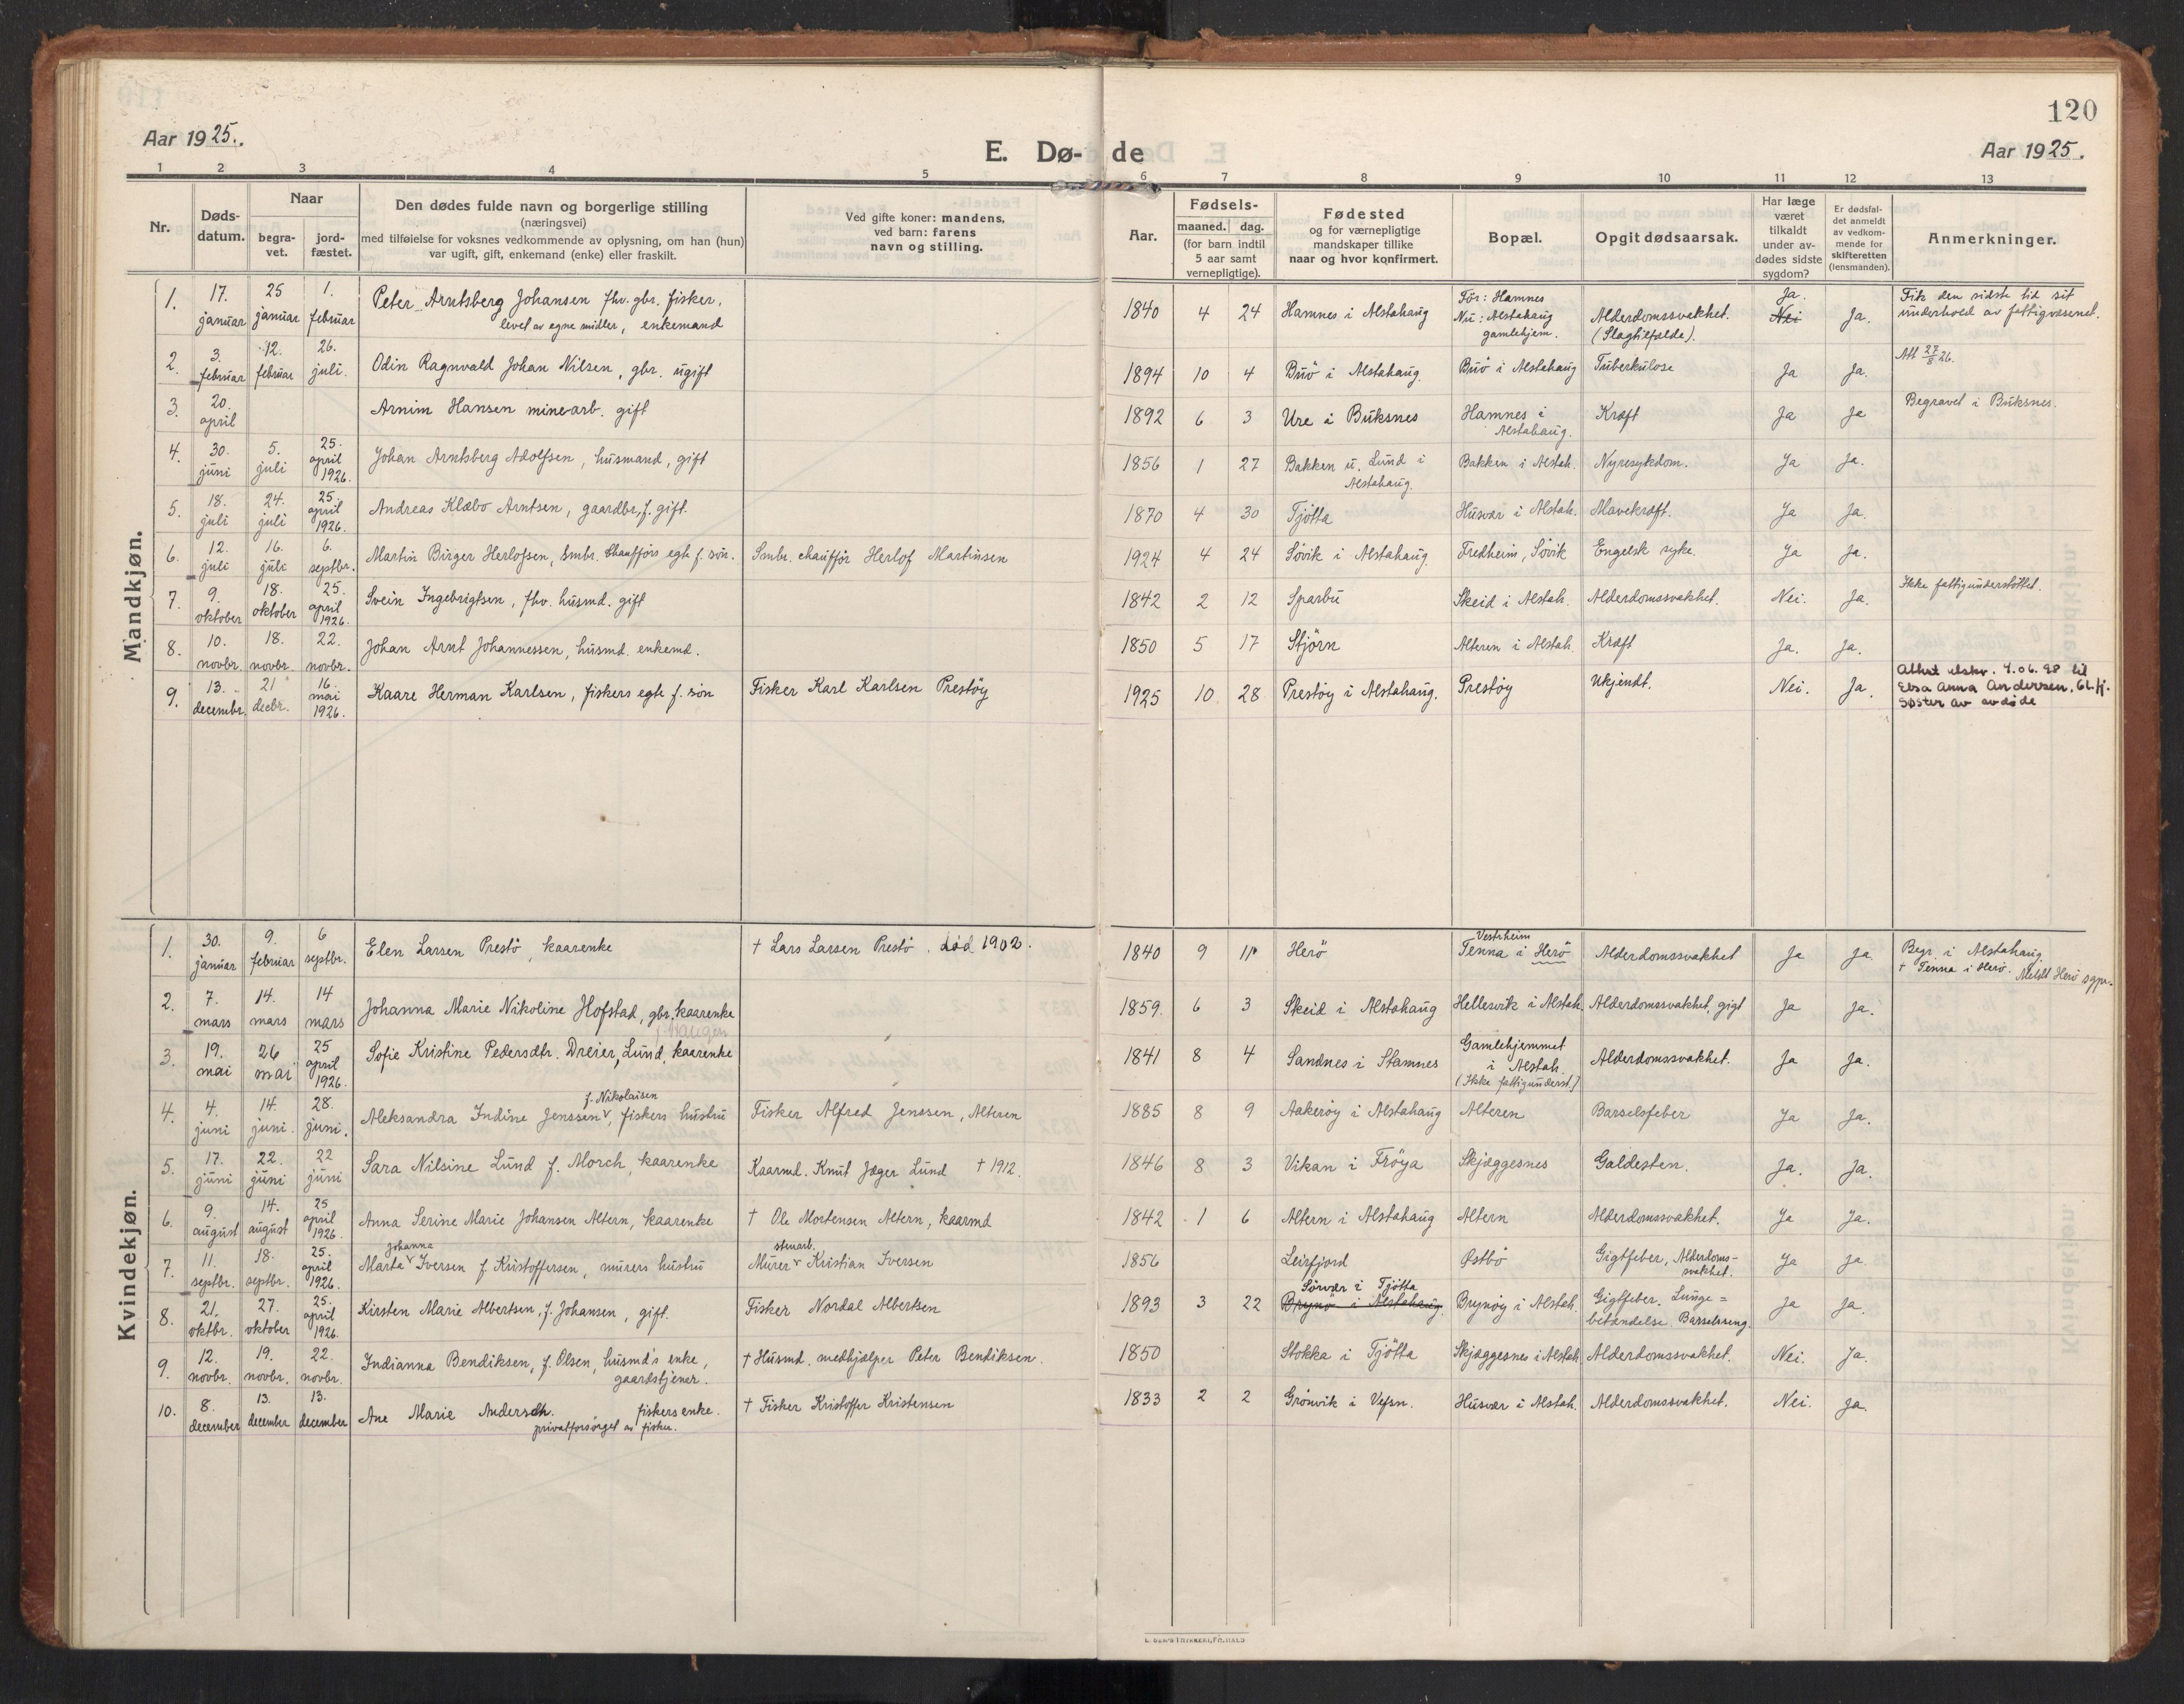 120
Aar 1925.
E. Dø- de
Aar 1925.
1 2 3 4 5 6 7 8 9 10 11 12 13
Nr.
Døds-
datum.
Naar
begra-
vet.
jord-
fæstet.
Den dødes fulde navn og borgerlige stilling
(næringsvei)
med tilføielse for voksnes vedkommende av oplysning, om han (hun)
var ugift, gift, enkemand (enke) eller fraskilt.
Ved gifte koner: mandens,
ved barn: farens
navn og stilling.
Aar.
Fødsels-
maaned. dag.
(for barn indtil
5 aar samt
vernepligtige).
Fødested
og for værnepligtige
mandskaper tillike
naar og hvor konfirmert.
Bopæl.
Opgit dødsaarsak.
Har læge
været
tilkaldt
under av-
dødes sidste
sygdom?
Er dødsfal-
det anmeldt
av vedkom-
mende for
skifteretten
(lensmanden).
Anmerkninger.
Mandkjøn.
1. 17. januar 25 januar 1. februar Peter Arntsberg Johansen fhv. gbr. fisker, levet av egne midler, enkemand 1840 4 24 Hamnes i Alstahaug Før: Hamnes Nu: Alstahaug gamlehjem. Alderdomssvakhet. (Slagtilfælde). Ja. Nei Ja. Fik den sidste tid sit underhold av fattigvæsenet.
2. 3. februar 12. februar 26. juli. Odin Ragnvald Johan Nilsen, gbr. ugift 1894 10 4 Buö i Alstahaug. Buö i Alstahaug Tuberkulose Ja Ja. Att 27/8 26.
3. 20. april Arnim Hansen minearb. gift 1892 6 3 Ure i Buksnes Hamnes i Alstahaug. Kræft Ja Ja Begravet i Buksnes.
4. 30. juni 5. juli 25. april 1926. Johan Arntsberg Adolfsen, husmand, gift 1856 1 27 Bakken u. Lund i Alstahaug. Bakken i Alstah. Nyresykdom. Ja Ja.
5. 18. juli 24. juli 25. april 1926. Andreas Klæbo Arntsen, gaardbr. f. gift. 1870 4 30 Tjötta Husvær i Alstah. Mavekræft. Ja Ja.
6. 12. juli 16. juli 6. septbr. Martin Birger Herlofsen, Smbr. Chaufförs egte f. sön. Smbr. chaufför Herlof Martinsen 1924 4 24 Sövik i Alstahaug. Fredheim, Sövik Engelsk syke. Ja Ja.
7. 9. oktober 18. oktober 25. april 1926. Svein Ingebrigtsen, fhv. husmd. gift 1842 2 12 Sparbu Skeid i Alstah. Alderdomssvakhet. Nei. Ja. Ikke fattigunderstöttet.
8. 10. novbr. 18. novbr. 22. novbr. Johan Arnt Johannessen, husmd. enkemd. 1850 5 17 Stjörn Alteren i Alstah. Kræft Ja. Ja.
9. 13. decembr. 21 decbr. 16. mai 1926. Kaare Herman Karlsen, fiskers egte f. sön Fisker Karl Karlsen Prestöy 1925 10 28 Prestöy i Alstahaug. Prestöy Ukjendt. Nei. Ja. Attest utskr. 4.06.98 til Elsa Anna Andersen, søster av avdøde
Kvindekjøn.
1. 30. januar 9. februar 6 septbr. Elen Larsen Prestö, kaarenke † Lars Larsen Prestö. död 1902. 1840 9 11 Herö Vestrheim Tenna i Herö Alderdomssvakhet Ja Ja Begr. i Alstahaug † Tenna i Herö. Meldt Herö sgpr.
2. 7. mars 14. mars 14 mars Johanna Marie Nikoline Hofstad, gbr. kaarenke 1859. 6 3 Skeid i Alstahaug Hellesvik i Alstah. Alderdomssvakhet, gigt Ja Ja.
3. 19. mai 26 mai 25 april 1926. Sofie Kristine Pedersdtr. Dreier, Lund, kaarenke f. Haugen 1841 8 4 Sandnes i Stamnes Gamlehjemmet i Alstah. (Ikke fattigunderst.) Alderdomssvakhet. Ja Ja.
4. 4. juni 14. juni. 28. juni. Aleksandra Indine Jenssen f. Nikolaisen, fiskers hustru Fisker Alfred Jenssen, Alteren 1885 8 9 Aakeröy i Alstahaug Alteren Barselsfeber Ja Ja.
5. 17. juni 22. juni 22 juni Sara Nilsine Lund f. Morch, kaarenke Kaarmd. Knut Jæger Lund † 1912. 1846 8 3 Vikan i Fröya Skjæggesnes Galdesten. Ja. Ja.
6. 9. august 14. august 25 april 1926. Anna Serine Marie Johansen Altern, kaarenke † Ole Mortensen Altern, kaarmd 1842 1 6 Altern i Alstahaug Altern Alderdomssvakhet. Ja Ja.
7. 11. septbr. 18. septbr. 25. april 1926. Marta Johanna Iversen f. Kristoffersen, murers hustru Murer stenarb. Kristian Iversen 1856 Leirfjord Østbö Gigtfeber, Alderdoms-svakhet. Ja Ja.
8. 21. oktbr. 27. oktober 25. april 1926. Kirsten Marie Albertsen, f. Johansen, gift. Fisker Nordal Albertsen 1893 3 22 Sörvær i Tjötta Brynö i Alstahaug. Brynöy i Alstah. Gigtfeber. Lunge= betændelse. Barselseng. Ja Ja.
9. 12. novbr. 19. novbr. 22. novbr. Indianna Bendiksen, f. Olsen, husmd's enke, gaardstjener. † Husmd. medhjælper Peter Bendiksen. 1850 Stokka i Tjötta Skjæggesnes i Alstah. Alderdomssvakhet. Nei. Ja.
10. 8. december 13. december 13. december Ane Marie Andersen. fiskers enke. privatforsörget av fisker. † Fisker Kristoffer Kristensen 1833 2 2 Grönvik i Vefsn. Husvær i Alstah. Alderdomssvakhet. Nei. Ja.